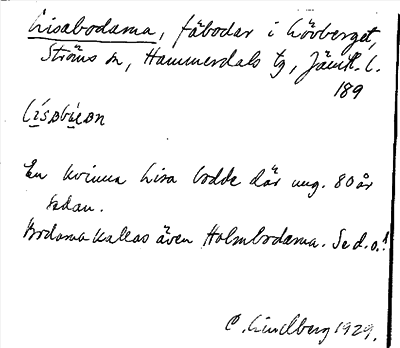 Lisabodarna, fäbodar i Lövberget,
Ströms sn, Hammerdals tg, Jämtl. l.
189
En kvinna Lisa bodde där ung. 80 år
sedan.
Bodarna kallas även Holmbodarna. Se d.o.!
C. Lindberg 1929.